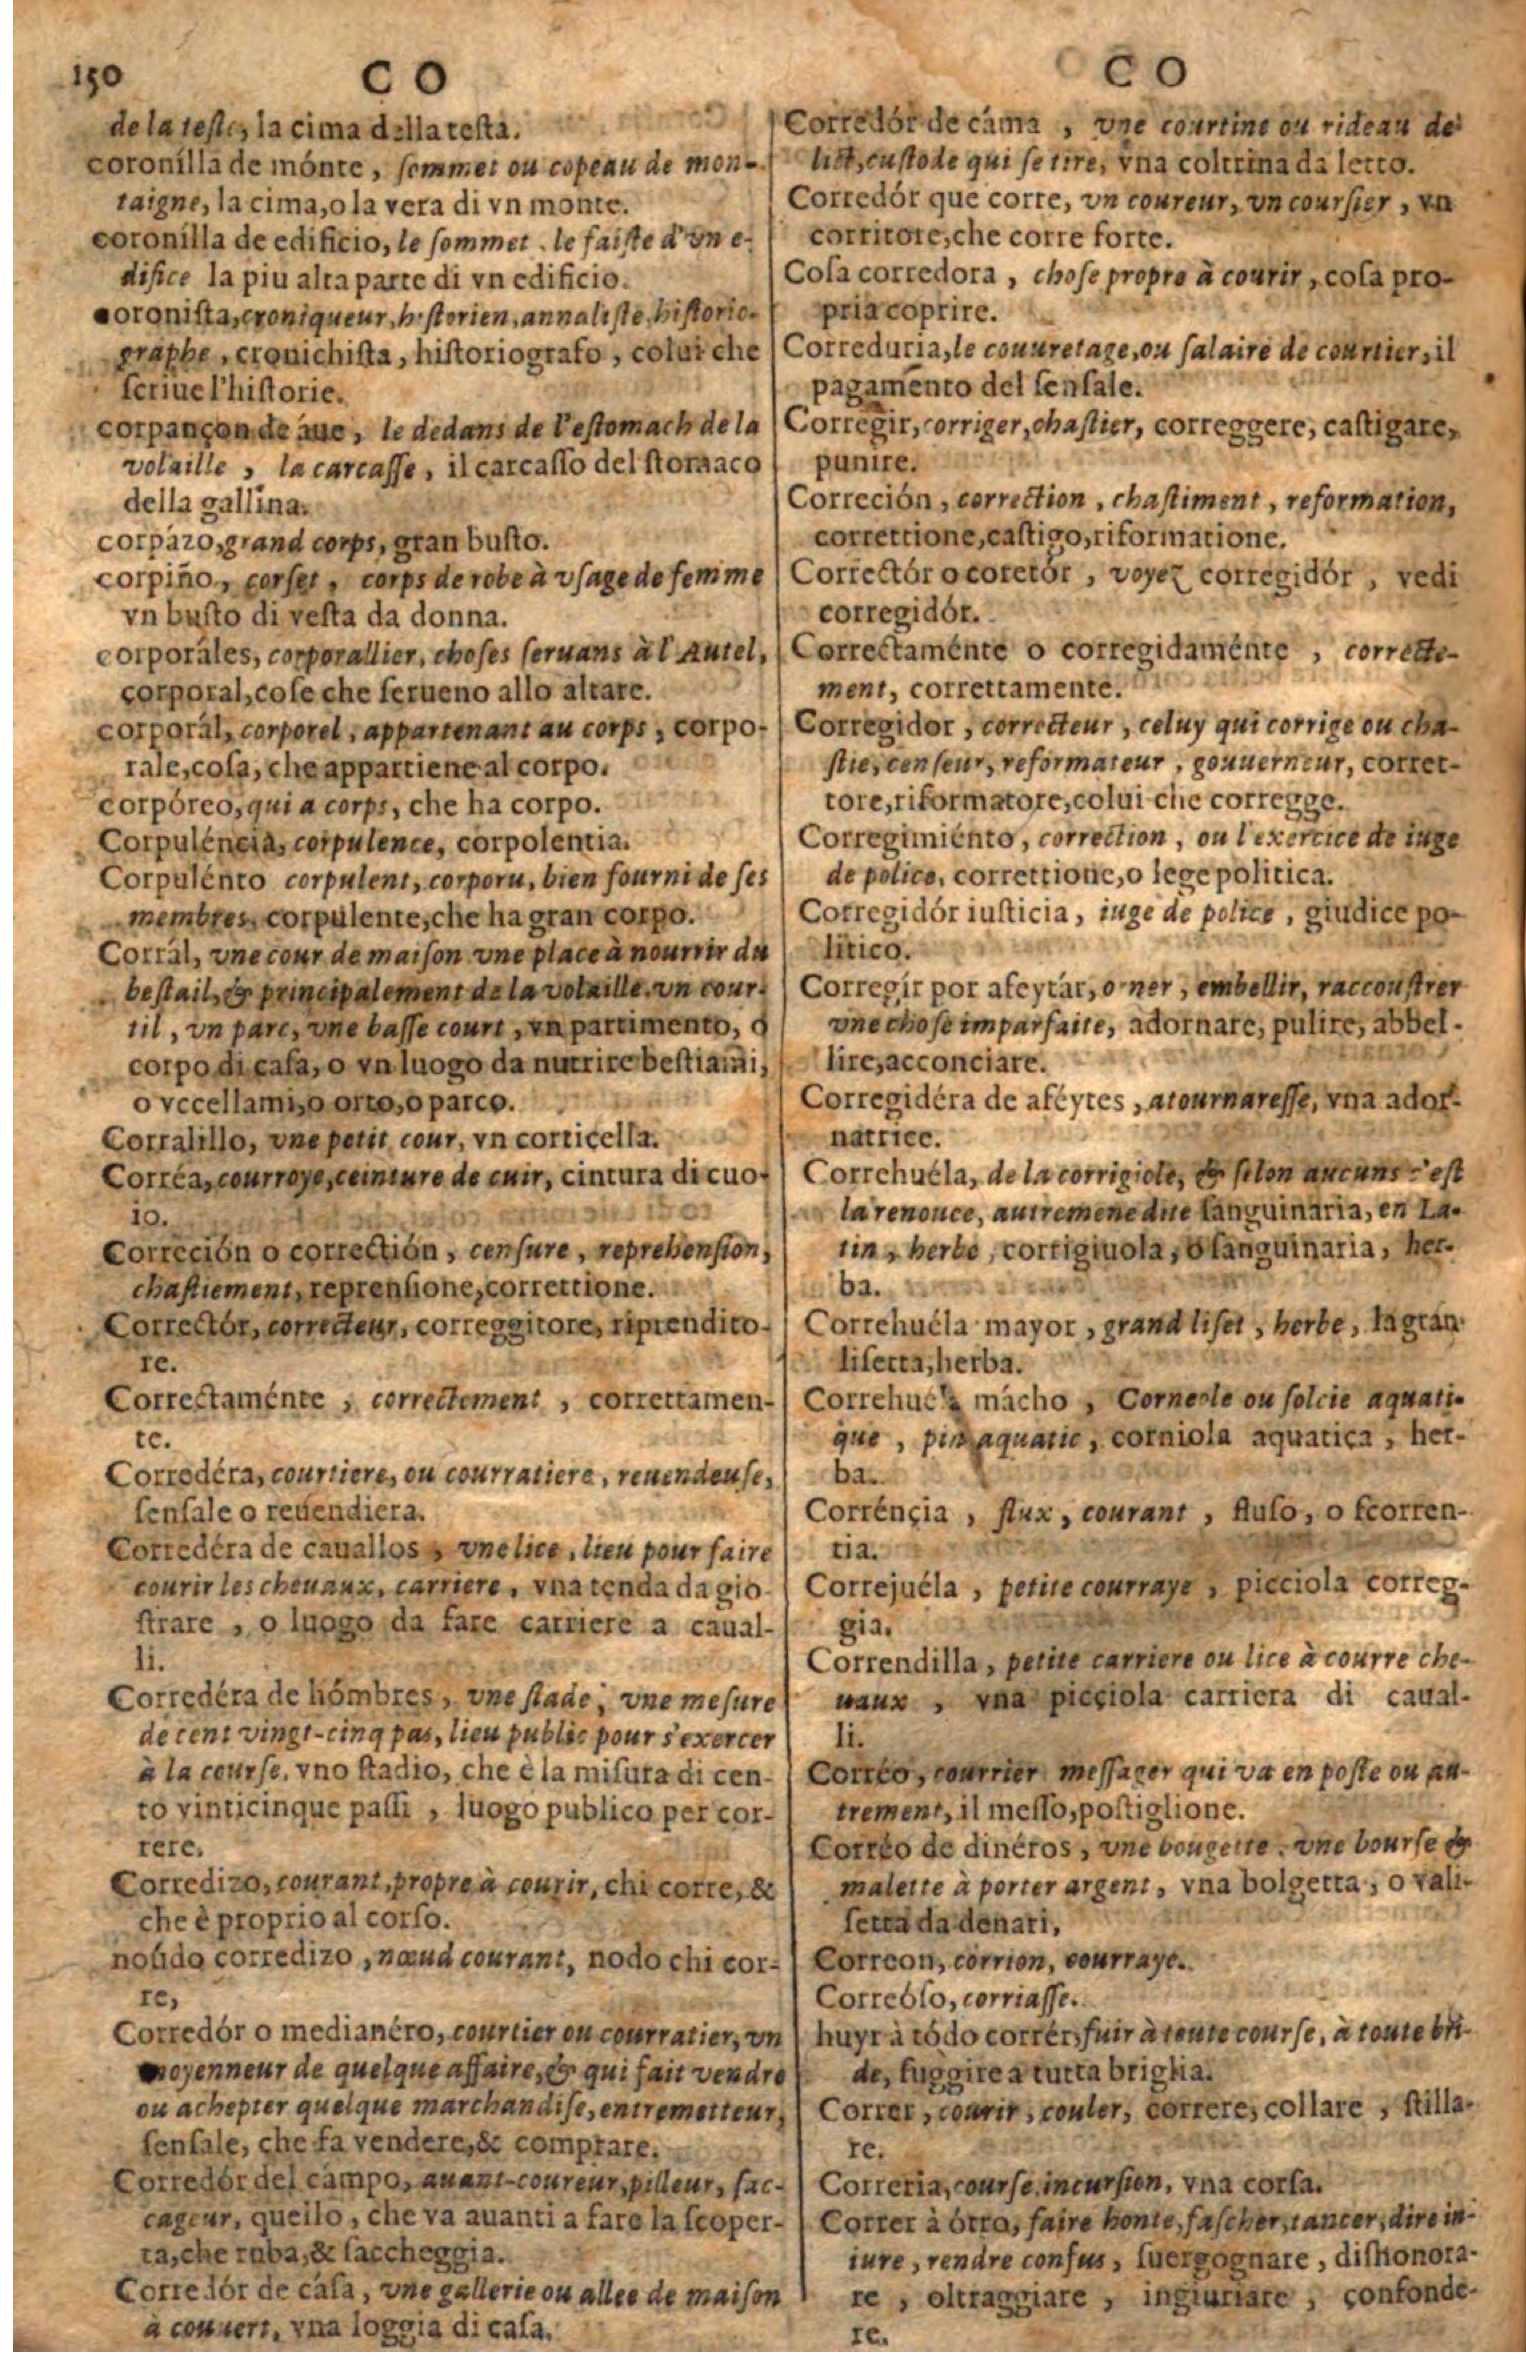 150
C O
de la teste, la cima della testa.
coronílla de mónte, sommet ou copeau de mon-
taigne, la cima, o la vera di vn monte.
coronílla de edificio, le sommet. le faiste d'vn e-
difice la piu alta parte di vn edificio.
oronista, croniqueur, historien, annaliste, historio-
graphe, cronichista, historiografo, colui che
scriue l'historie.
corpançon de áue, le dedans de l'estomach de la
volaille, la carcasse, il carcasso del stomaco
della gallina.
corpázo, grand corps, gran busto.
corpiño, corset, corps de robe à vsage de femme
vn busto di vesta da donna.
corporáles, corporallier, choses seruans à l'Autel,
corporal, cose che serueno allo altare.
corporál, corporel, appartenant au corps, corpo-
rale, cosa, che appartiene al corpo.
corpóreo, qui a corps, che ha corpo.
Corpuléncia, corpulence, corpolentia.
Corpulénto corpulent, corporu, bien fourni de ses
membres, corpulente, che ha gran corpo.
Corrál, vne cour de maison vne place à nourrir du
bestail, & principalement de la volaille. vn cour-
til, vn parc, vne basse court, vn partimento, o
corpo di casa, o vn luogo da nutrire bestiami,
o vccellami, o orto, o parco.
Corralillo, vne petit cour, vn corticella.
Corréa, courroye, ceinture de cuir, cintura di cuo-
io.
Correción o corrección, censure, reprehension,
chastiement, reprensione, correttione.
Corrector, correcteur, correggitore, riprendito-
re.
Correctaménte, correctement, correttamen-
te.
Corredéra, courtiere, ou courratiere, reuendeuse,
sensale o reuendiera.
Corredéra de cauallos, vne lice, lieu pour faire
courir les cheuaux, carriere, vna tenda da gio-
strare, o luogo da fare carriere a caual-
li.
Corredéra de hómbres, vne stade, vne mesure
de cent vingt-cinq pas, lieu public pour s'exercer
à la course. vno stadio, che è la misura di cen-
to vinticinque passi, luogo publico per cor-
rere.
Corredizo, courant, propre à courir, chi corre, &
che è proprio al corso.
noúdo corredizo, nœud courant, nodo chi cor-
re,
Corredór o medianéro, courtier ou courratier, vn
moyenneur de quelque affaire, & qui fait vendre
ou achepter quelque marchandise, entremetteur,
sensale, che fa vendere, & comprare.
Corredór del campo, auant-coureur, pilleur, sac-
cageur, quello, che va auanti a fare la scoper-
ta, che ruba, & saccheggia.
Corredór de cása, vne gallerie ou allee de maison
à couuert, vna loggia di casa.
C O
Corredór de cáma, vne courtine ou rideau de
lict, custode qui se tire, vna coltrina da letto.
Corredór que corre, vn coureur, vn coursier, vn
corritore, che corre forte.
Cosa corredora, chose propre à courir, cosa pro-
pria coprire.
Correduria, le couuretage, ou salaire de courtier, il
pagamento del sensale.
Corregir, corriger, chastier, correggere, castigare,
punire.
Correción, correction, chastiment, reformation,
correttione, castigo, riformatione.
Correctór o coretór, voyez corregidór, vedi
corregidór.
Correctaménte o corregidaménte, correcte-
ment, correttamente.
Corregidor, correcteur, celuy qui corrige ou cha-
stie, censeur, reformateur, gouuerneur, corret-
tore, riformatore, colui che corregge.
Corregimiénto, correction, ou l'exercice de iuge
de police, correttione, o lege politica.
Corregidór iusticia, iuge de police, giudice po-
litico.
Corregír por afeytár, orner, embellir, raccoustrer
vne chose imparfaite, adornare, pulire, abbel-
lire, acconciare.
Corregidéra de aféytes, atournaresse, vna ador-
natrice.
Correhuéla, de la corrigiole, & selon aucuns c'est
la renouee, autremene dite sanguinaria, en La-
tin, herbe, corrigiuola, o sanguinaria, her-
ba.
Correhuéla mayor, grand liset, herbe, la gran
lisetta, herba.
Correhuéla mácho, Corneole ou solcie aquati-
que, pin aquatic, corniola aquatica, her-
ba.
Corrénçia, flux, courant, fluso, o scorren-
tia.
Correjuéla, petite courraye, picciola correg-
gia.
Correndilla, petite carriere ou lice à courre che-
uaux, vna picciola carriera di caual-
li.
Corréo, courrier messager qui va en poste ou au-
trement, il messo, postiglione.
Corréo de dinéros, vne bougette. vne bourse &
malette à porter argent, vna bolgetta, o vali-
setta da denari,
Correon, corrion, courraye.
Correóso, corriasse.
huyr à tódo corrér, fuir à toute course, à toute bri-
de, fuggire a tutta briglia.
Correr, courir, couler, correre, collare, stilla-
re.
Correria, course, incursion, vna corsa.
Correr à ótro, faire honte, fascher, tancer, dire in-
iure, rendre confus, suergognare, dishonora-
re, oltraggiare, ingiuriare, confonde-
re.